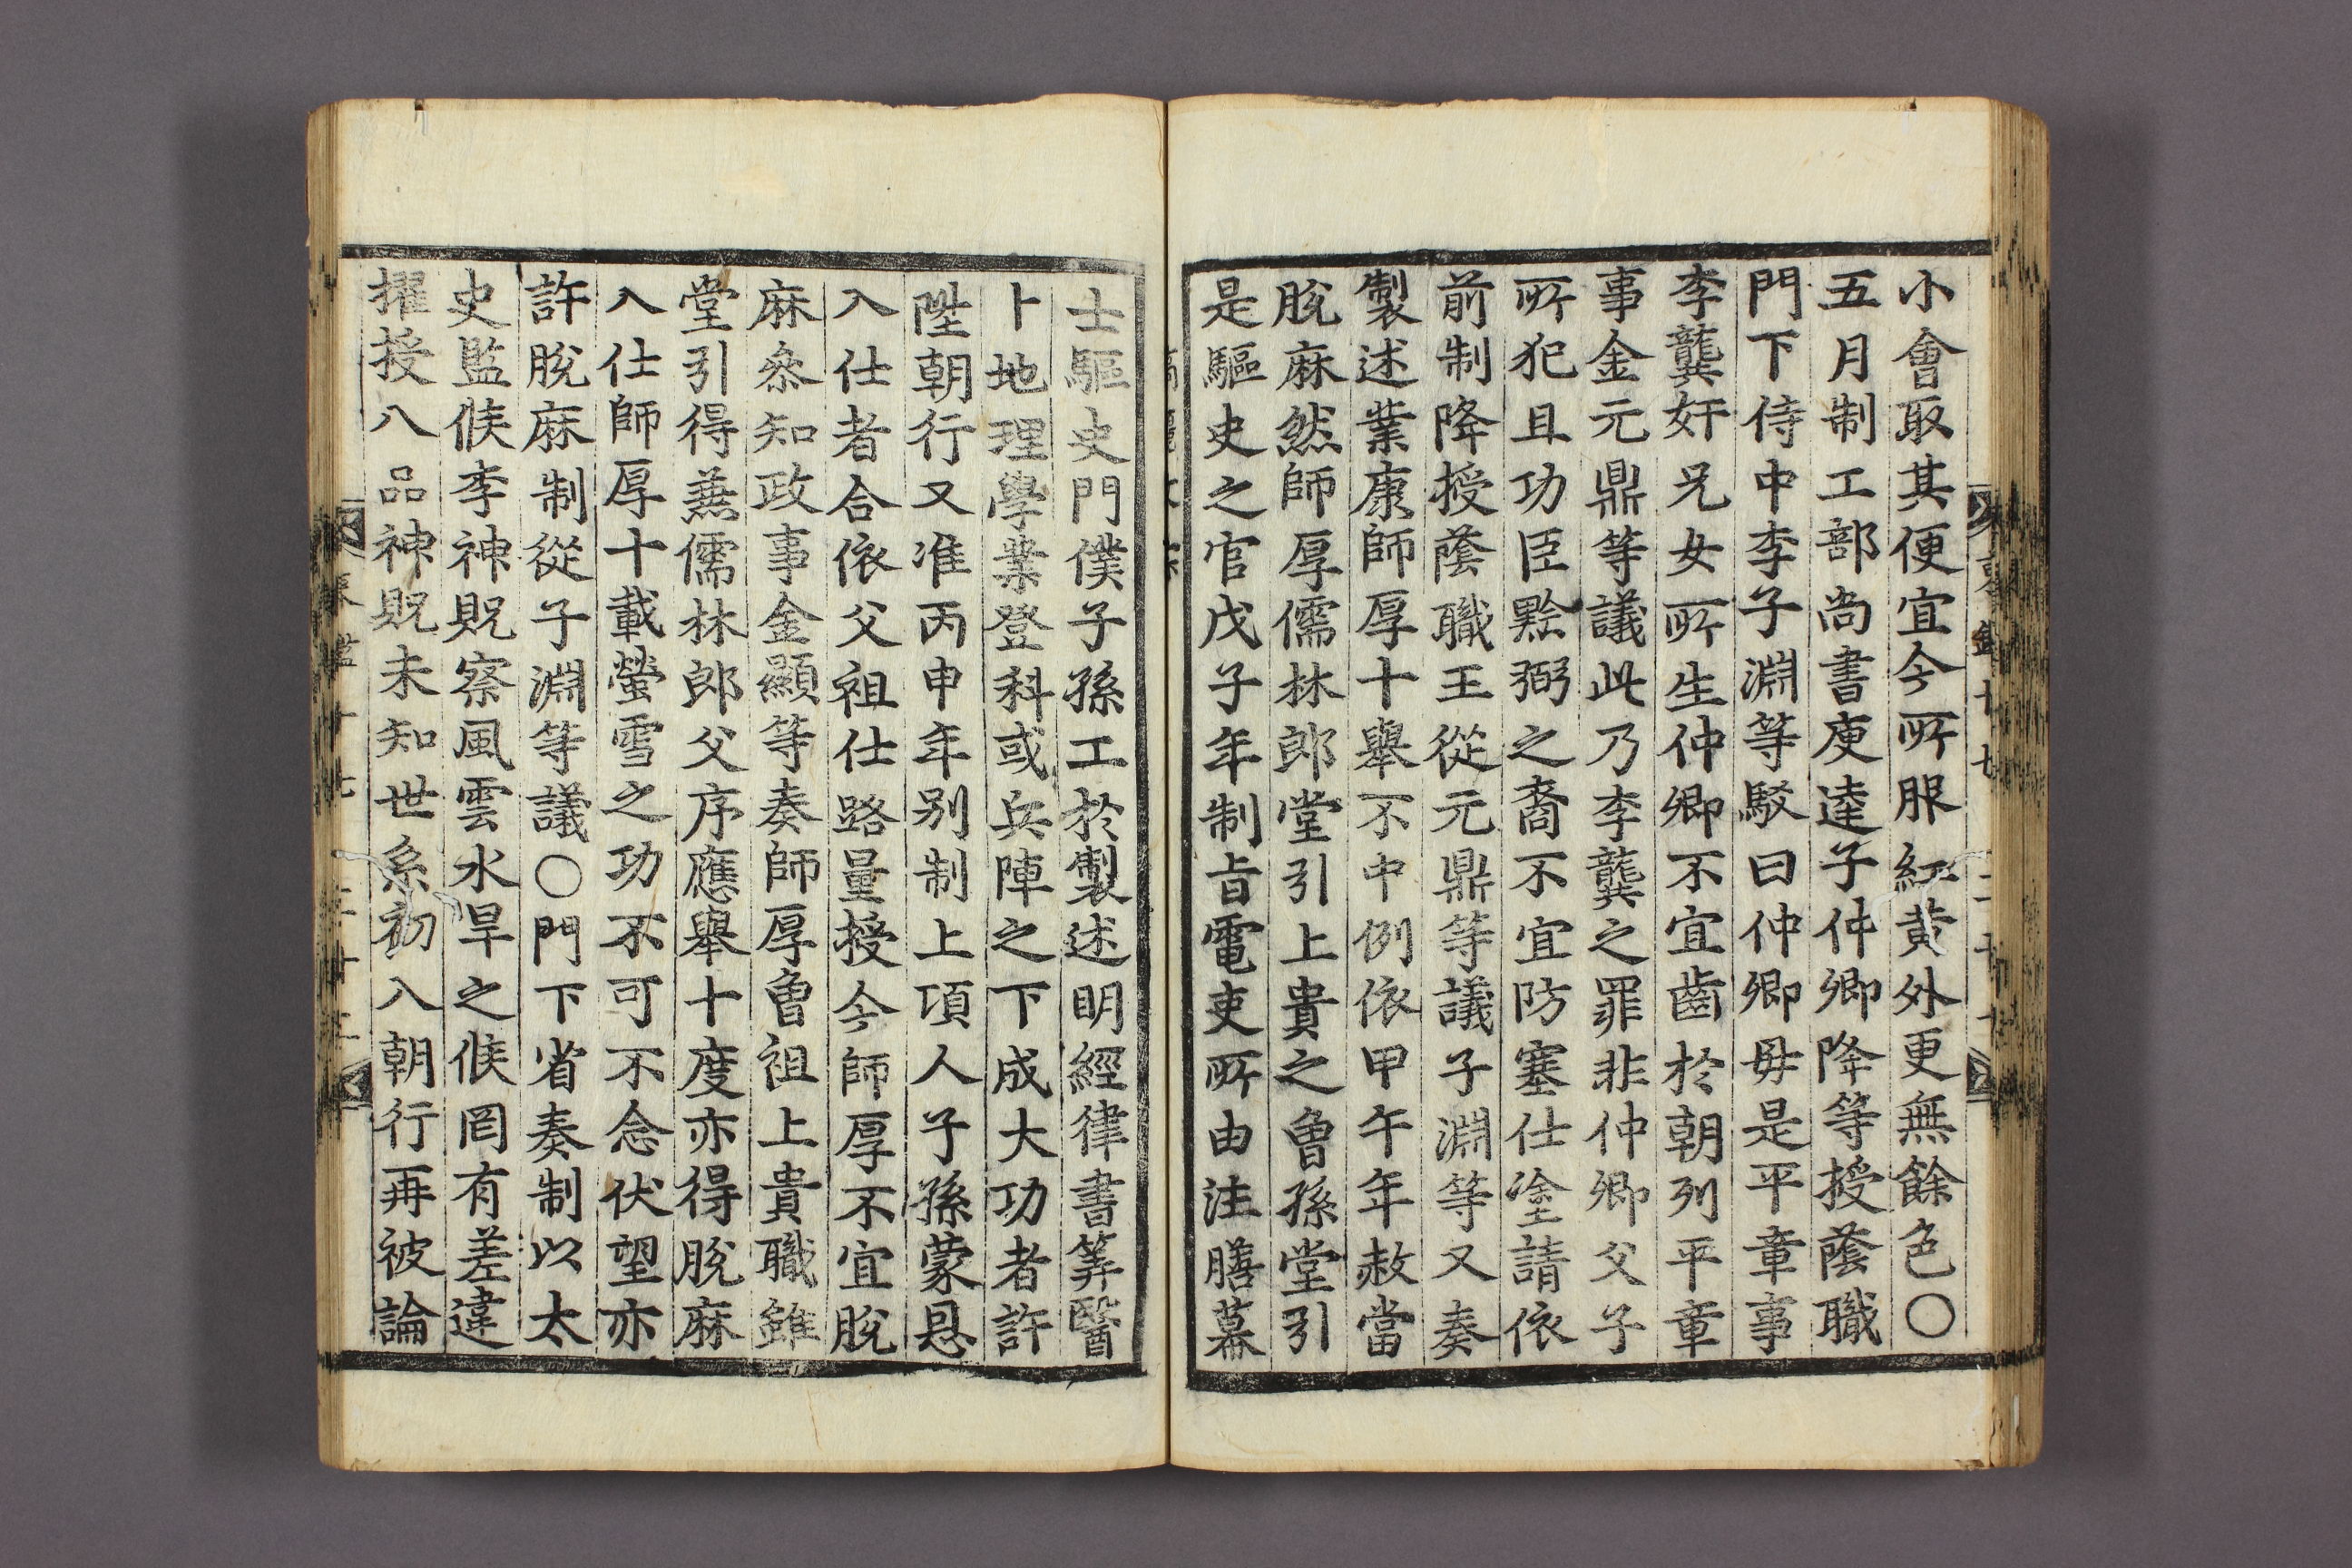 小會取其便宜今所服紅黃外更無餘色〇
五月制工部尙書庾逵子仲卿降等授蔭職
門下侍中李子淵等駁曰仲卿毋是平章事
李龔奸兄女所生仲卿不宜齒於朝列平章
事金元鼎等議此乃李龔之罪非仲卿父子
所犯且功臣黔弼之裔不宜防塞仕塗請依
前制降授蔭職王從元鼎等議子淵等又奏
製述業康師厚十舉不中例依甲午年赦當
脫麻然師厚儒林郎堂引上貴之曾孫堂引
是驅史之官戊子年制旨電吏所由注膳幕
士驅史門僕子孫工於製述明經律書筭醫
卜地理學業登科或兵陣之下成大功者許
陞朝行又准丙申年別制上項人子孫蒙恩
入仕者合依父祖仕路量授今師厚不宜脫
麻叅知政事金顯等奏師厚曾祖上貴職雖
堂引得兼儒林郎父序應舉十度亦得脫麻
入仕師厚十載螢雪之功不可不念伏望亦
許脫麻制從子淵等議〇門下省奏制以太
史監候李神貺察風雲水旱之候罔有差違
擢授八品神貺未知世系初入朝行再被論